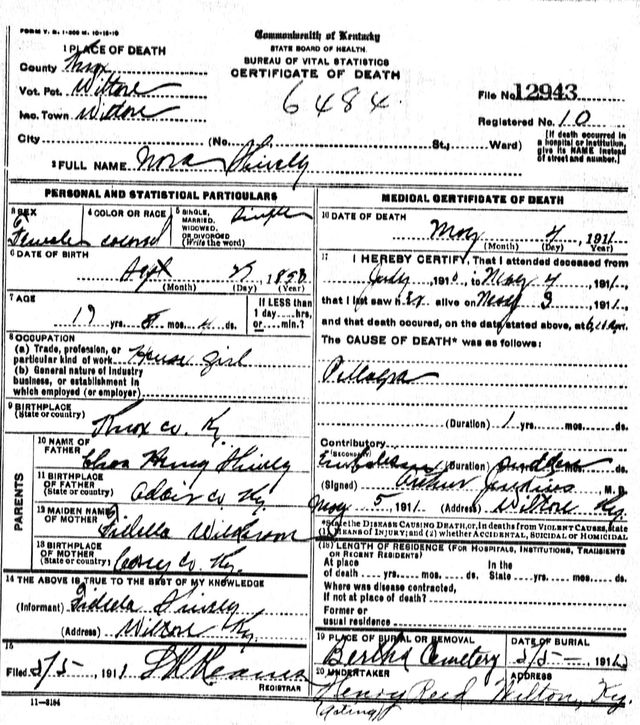 FORM V. S. 1-
Commonwealth of Kentucky
STATE BOARD OF HEALTH
BUREAU OF VITAL STATISTICS
CERTIFICATE OF DEATH
1 PLACE OF DEATH
County Knox
Vot. Pct. Wilton
Inc. Town Wilton
6484
File No. 12943
Registered No. 10
City (No. St.; Ward)
[If death occurred in a hospital or institution, give its NAME instead of street and number.]
2 FULL NAME Nora Shively
PERSONAL AND STATISTICAL PARTICULARS
3 SEX Female
4 COLOR OR RACE colored
5 SINGLE, MARRIED, WIDOWED, OR DIVORCED (Write the word) Single
6 DATE OF BIRTH
Sept
(Month) (Day) (Year)
7 AGE
yrs. 8 mos. ds.
If LESS than 1 day hrs. or min.?
8 OCCUPATION
(a) Trade, profession, or particular kind of work House girl
(b) General nature of industry business, or establishment in which employed (or employer)
9 BIRTHPLACE
(State or country) Knox co. Ky.
PARENTS
10 NAME OF FATHER Henry Shively
11 BIRTHPLACE OF FATHER (State or country) Adair co. Ky.
12 MAIDEN NAME OF MOTHER Fidella Wilkerson
13 BIRTHPLACE OF MOTHER (State or country) Casey co. Ky.
14 THE ABOVE IS TRUE TO THE BEST OF MY KNOWLEDGE
(Informant) Fidella Shively
(Address) Wilton Ky
15
Filed 5/5 - 1911
REGISTRAR
11-3184
MEDICAL CERTIFICATE OF DEATH
16 DATE OF DEATH
May 4, 1911
(Month) (Day) (Year)
17 I HEREBY CERTIFY, That I attended deceased from
July, 1910, to May 4, 1911,
that I last saw her alive on May 3, 1911,
and that death occured, on the date stated above, at
The CAUSE OF DEATH* was as follows:
(Duration) 1 yrs. mos. ds.
Contributory
(SECONDARY)
Embolism (Duration) sudden
(Signed) Arthur Jenkins M. D.
May 5, 1911. (Address) Wilton Ky.
*State the DISEASE CAUSING DEATH, or, in deaths from VIOLENT CAUSES, state (1) MEANS OF INJURY; and (2) whether ACCIDENTAL, SUICIDAL OR HOMICIDAL
(18) LENGTH OF RESIDENCE (FOR HOSPITALS, INSTITUTIONS, TRANSIENTS OR RECENT RESIDENTS)
At place of death yrs. mos. ds. In the State yrs. mos. ds.
Where was disease contracted, If not at place of death?
Former or usual residence
19 PLACE OF BURIAL OR REMOVAL
Bertha Cemetery
DATE OF BURIAL
5/5 - 1911
20 UNDERTAKER
Henry Reed
(acting)
ADDRESS
Wilton, Ky.